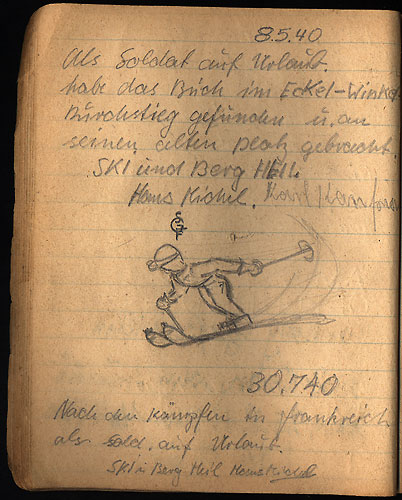 8.5.40
Als Soldat auf Urlaub.
habe das Buch im Eckel-Winkel
Burchstieg gefunden u. an
seinen alten Platz gebracht.
SKI und Berg HEIL
Hans Kichel. Karl
30.7.40
Nach den Kämpfen in Frankreich
als Sold. auf Urlaub.
SKI u Berg Heil Hans Kichel